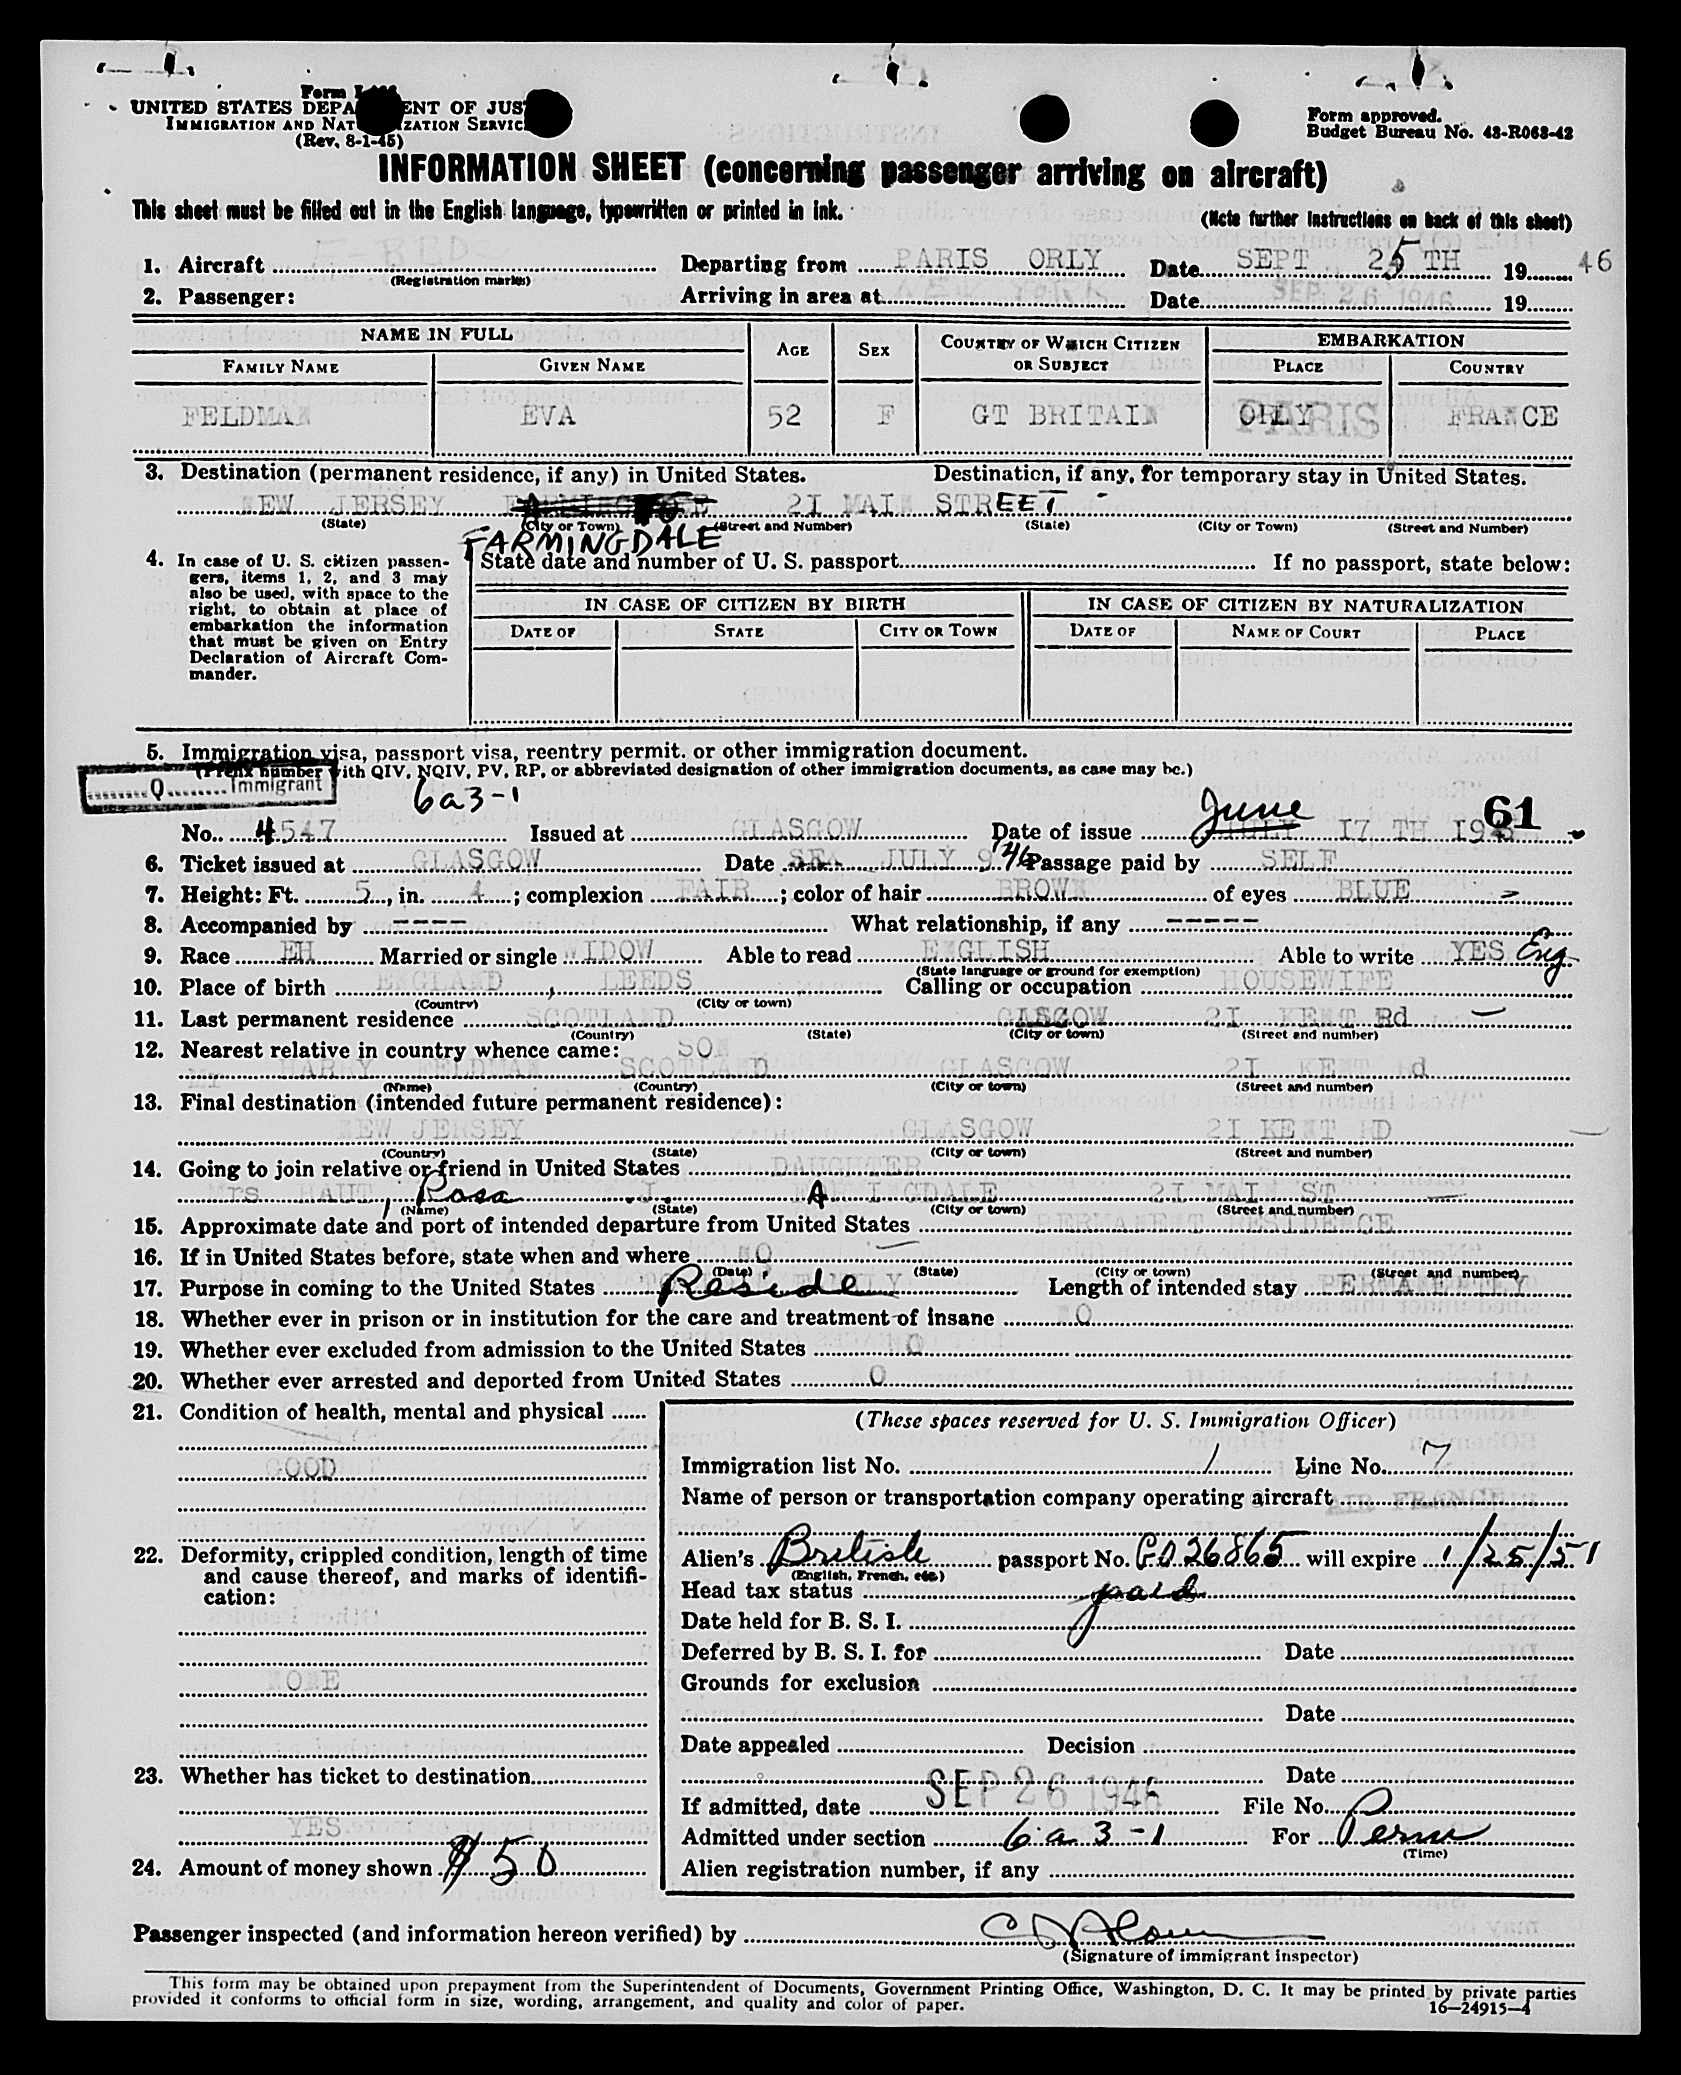 Form
UNITED STATES DEPA ENT OF JUS
IMMIGRATION AND NAT ZATION SERVIC
(Rev. 8-1-45)
Form approved.
Budget Bureau No. 43-R063-42
INFORMATION SHEET (concerning passenger arriving on aircraft)
This sheet must be filled out in the English language, typewritten or printed in ink.
(Note further instructions on back of this sheet)
1. Aircraft Departing from PARIS ORLY Date SEPT 25 TH 19 46
(Registration marks)
2. Passenger: Arriving in area at NEW YORK Date SEP 26 1946 19
NAME IN FULL AGE SEX COUNTRY OF WHICH CITIZEN OR SUBJECT EMBARKATION
FAMILY NAME GIVEN NAME PLACE COUNTRY
FELDMAN EVA 52 F GT BRITAIN ORLY PARIS FRANCE
3. Destination (permanent residence, if any) in United States. Destination, if any, for temporary stay in United States.
NEW JERSEY 21 MAIN STREET -
(State) (City or Town) (Street and Number) (State) (City or Town) (Street and Number)
FARMINGDALE
4. In case of U. S. citizen passen-
gers, items 1, 2, and 3 may
also be used, with space to the
right, to obtain at place of
embarkation the information
that must be given on Entry
Declaration of Aircraft Com-
mander.
State date and number of U. S. passport If no passport, state below:
IN CASE OF CITIZEN BY BIRTH IN CASE OF CITIZEN BY NATURALIZATION
DATE OF STATE CITY OR TOWN DATE OF NAME OF COURT PLACE
5. Immigration visa, passport visa, reentry permit, or other immigration document.
(Prefix number with QIV, NQIV, PV, RP, or abbreviated designation of other immigration documents, as case may be.)
Q Immigrant
6a3-1
61
No. 4547 Issued at GLASGOW Date of issue June 17 TH 194
6. Ticket issued at GLASGOW Date JULY 9 '46 Passage paid by SELF
7. Height: Ft. 5, in. 4; complexion FAIR; color of hair BROWN of eyes BLUE
8. Accompanied by ---- What relationship, if any -----
9. Race EH Married or single WIDOW Able to read ENGLISH Able to write YES Eng
(State language or ground for exemption)
10. Place of birth ENGLAND, LEEDS Calling or occupation HOUSEWIFE
(Country) (City or town)
11. Last permanent residence SCOTLAND GLASGOW 21 KENT Rd
(Country) (State) (City or town) (Street and number)
12. Nearest relative in country whence came: SON
Mr HARRY FELDMAN SCOTLAND GLASGOW 21 KENT Rd
(Name) (Country) (City or town) (Street and number)
13. Final destination (intended future permanent residence):
NEW JERSEY GLASGOW 21 KENT RD
(Country) (State) (City or town) (Street and number)
14. Going to join relative or friend in United States DAUGHTER
Mrs RAUT, Rosa N.J. FARMINGDALE 21 MAIN ST
(Name) (State) (City or town) (Street and number)
15. Approximate date and port of intended departure from United States PERMANENT RESIDENCE
16. If in United States before, state when and where NO
(Date) (State) (City or town) (Street and number)
17. Purpose in coming to the United States Reside Length of intended stay PERMANENTLY
18. Whether ever in prison or in institution for the care and treatment of insane NO
19. Whether ever excluded from admission to the United States NO
20. Whether ever arrested and deported from United States NO
21. Condition of health, mental and physical
GOOD
22. Deformity, crippled condition, length of time
and cause thereof, and marks of identifi-
cation:
NONE
23. Whether has ticket to destination
YES
24. Amount of money shown $50
(These spaces reserved for U. S. Immigration Officer)
Immigration list No. 1 Line No. 7
Name of person or transportation company operating aircraft AIR FRANCE
Alien's British passport No. CO 26865 will expire 1/25/51
(English, French, etc.)
Head tax status paid
Date held for B. S. I.
Deferred by B. S. I. for Date
Grounds for exclusion
Date
Date appealed Decision
Date
If admitted, date SEP 26 1946 File No.
Admitted under section 6 a 3 - 1 For Perm
(Time)
Alien registration number, if any
Passenger inspected (and information hereon verified) by
(Signature of immigrant inspector)
This form may be obtained upon prepayment from the Superintendent of Documents, Government Printing Office, Washington, D. C. It may be printed by private parties
provided it conforms to official form in size, wording, arrangement, and quality and color of paper.
16-24915-4